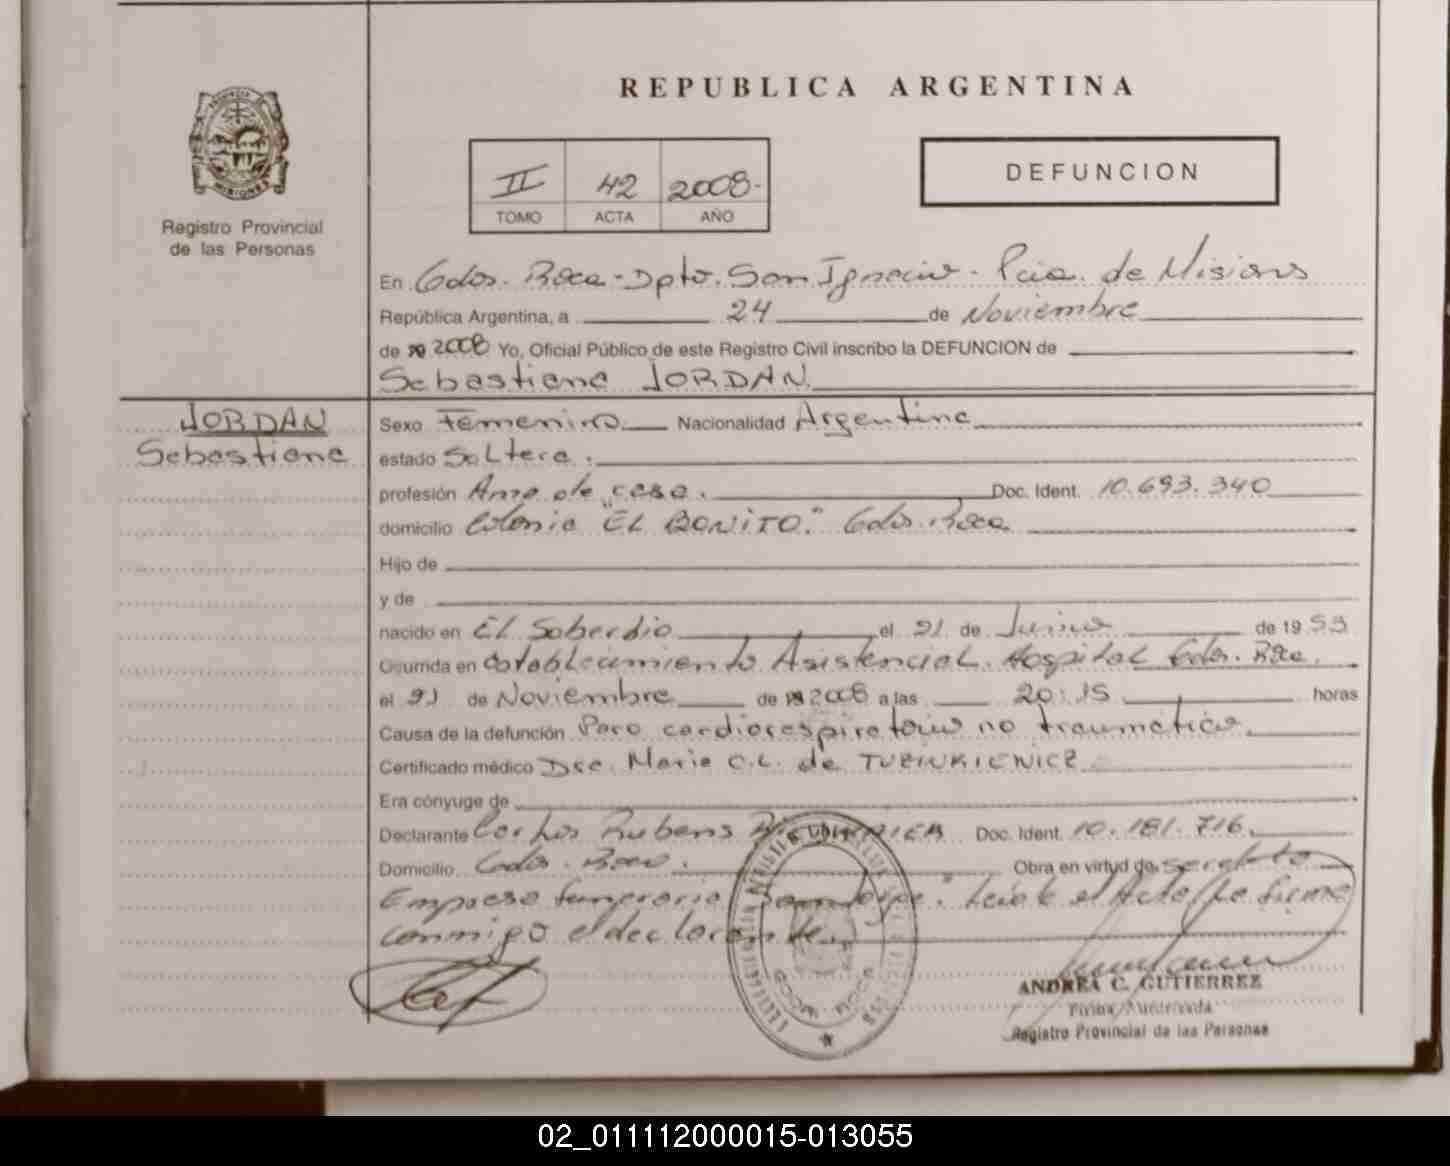 REPUBLICA ARGENTINA
PROVINCIA DE
MISIONES
Registro Provincial
de las Personas
II 42 2008.-
TOMO ACTA AÑO
DEFUNCION
En Gdor. Roca - Dpto. San Ignacio - Pcia. de Misiones
República Argentina, a 24 de Noviembre
de 19 2008 Yo, Oficial Público de este Registro Civil inscribo la DEFUNCION de
Sebastiana JORDAN
JORDAN
Sebastiana
Sexo Femenino Nacionalidad Argentina
estado Soltera.
profesión Ama de casa. Doc. Ident. 10.693.340
domicilio Colonia "EL BONITO." Gdor. Roca
Hijo de
y de
nacido en El Soberdio el 21 de Junio de 19 53
Ocurrida en Establecimiento Asistencial. Hospital Gdor. Roca.
el 21 de Noviembre de 19 2008 a las 20:15 horas
Causa de la defunción Paro cardiorespiratorio no traumático.
Certificado médico Dra. Maria C.L. de
Era cónyuge de
Declarante Carlos Rubens Doc. Ident. 10.181.716.
Domicilio Gdor. Roca. Obra en virtud de ser
Empresa funeraria "San Jorge". Leída el Acta la firma
conmigo el declarante.
ANDREA C. GUTIERREZ
Firma Autorizada
Registro Provincial de las Personas
02_011112000015-013055